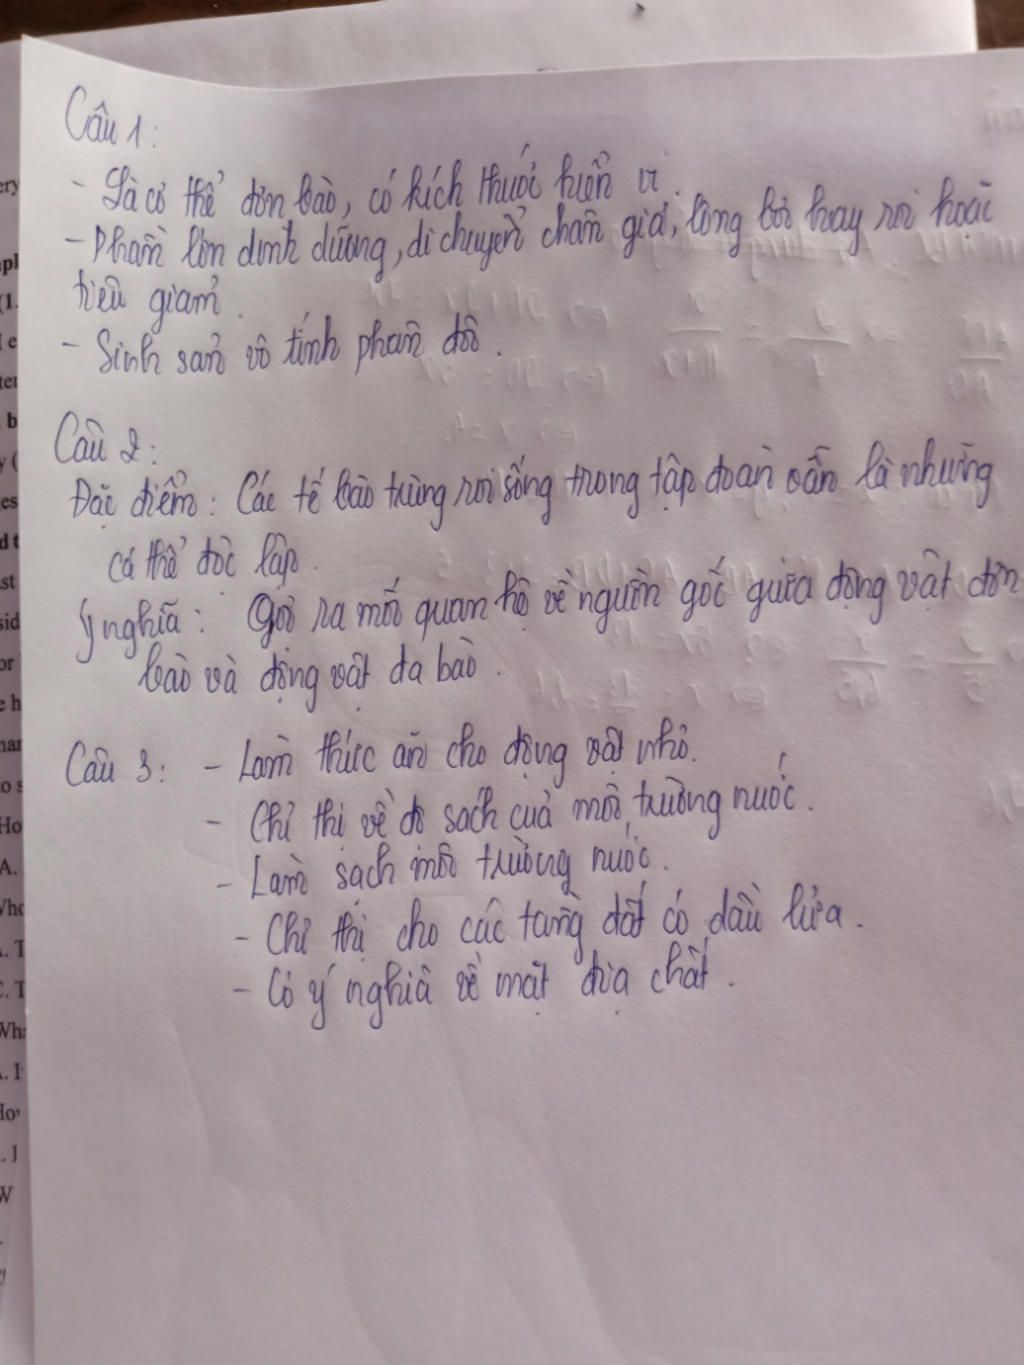 Câu 1:
- Là cơ thể đơn bào, có kích thước hiển vi.
- Phần lớn dinh dưỡng, di chuyển chân giả, lông bơi hay roi hoặc
tiêu giảm.
- Sinh sản vô tính phân đôi.
Câu 2:
Đặc điểm: Các tế bào trùng roi sống trong tập đoàn vẫn là những
cá thể độc lập.
Ý nghĩa: Gợi ra mối quan hệ về nguồn gốc giữa động vật đơn
bào và động vật đa bào.
Câu 3: - Làm thức ăn cho động vật nhỏ.
- Chỉ thị về độ sạch của môi trường nước.
- Làm sạch môi trường nước.
- Chỉ thị cho các tầng đất có dầu lửa.
- Có ý nghĩa về mặt địa chất.